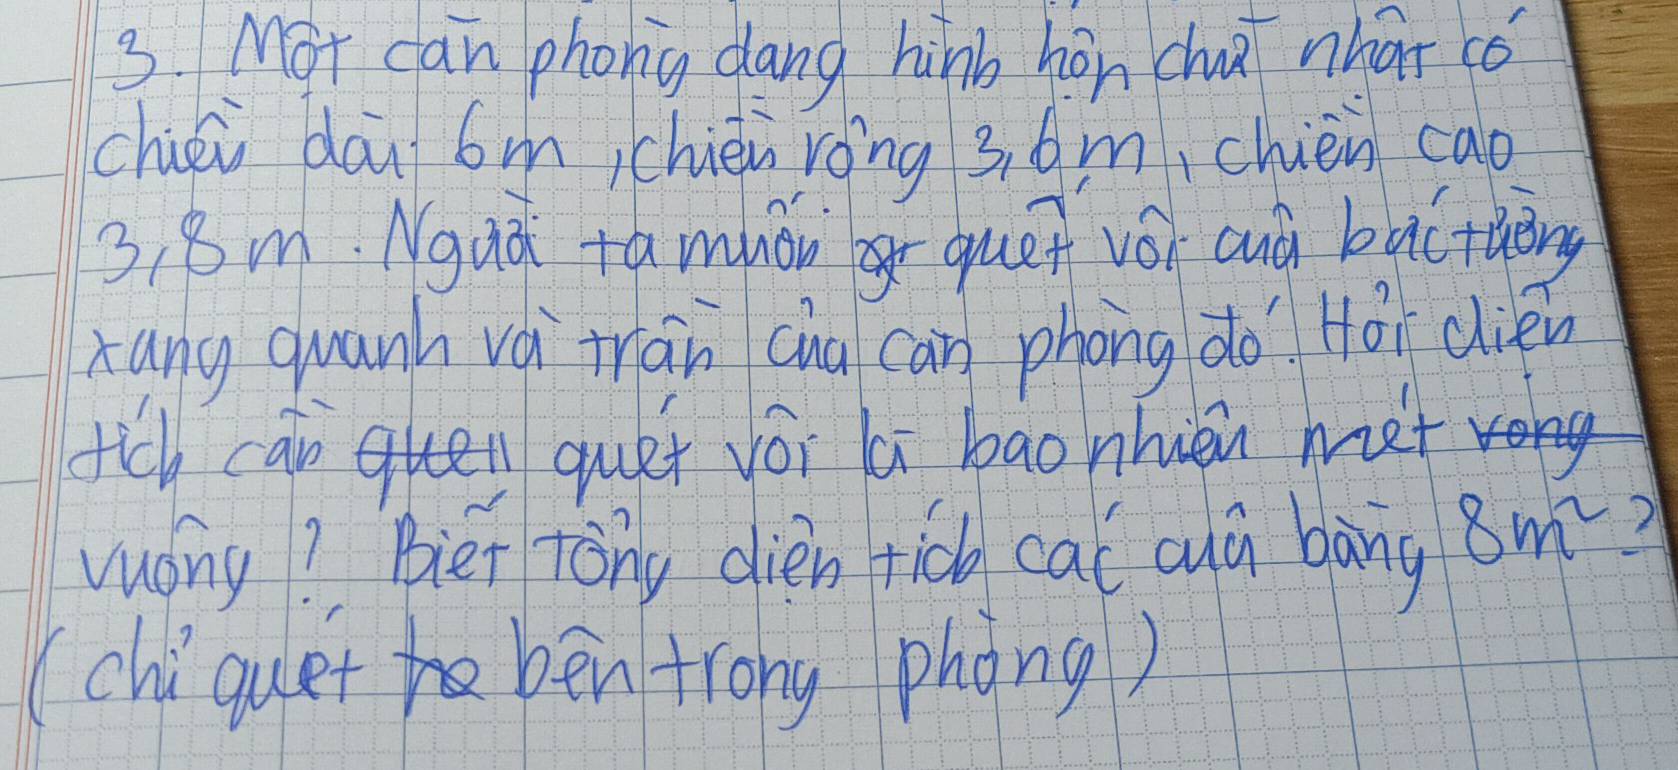 3. Một căn phòng dạng hình hộp chữ nhật có
chiều dài 6m, chiều rộng 3,6m, chiều cao
3,8m. Người ta muốn quét vôi của bức tường
xung quanh và trần của căn phòng đó. Hỏi diện
tích cần quét vôi là bao nhiêu mét
vuông? Biết tổng diện tích các cửa bằng 8m²?
(chỉ quét bên trong phòng)